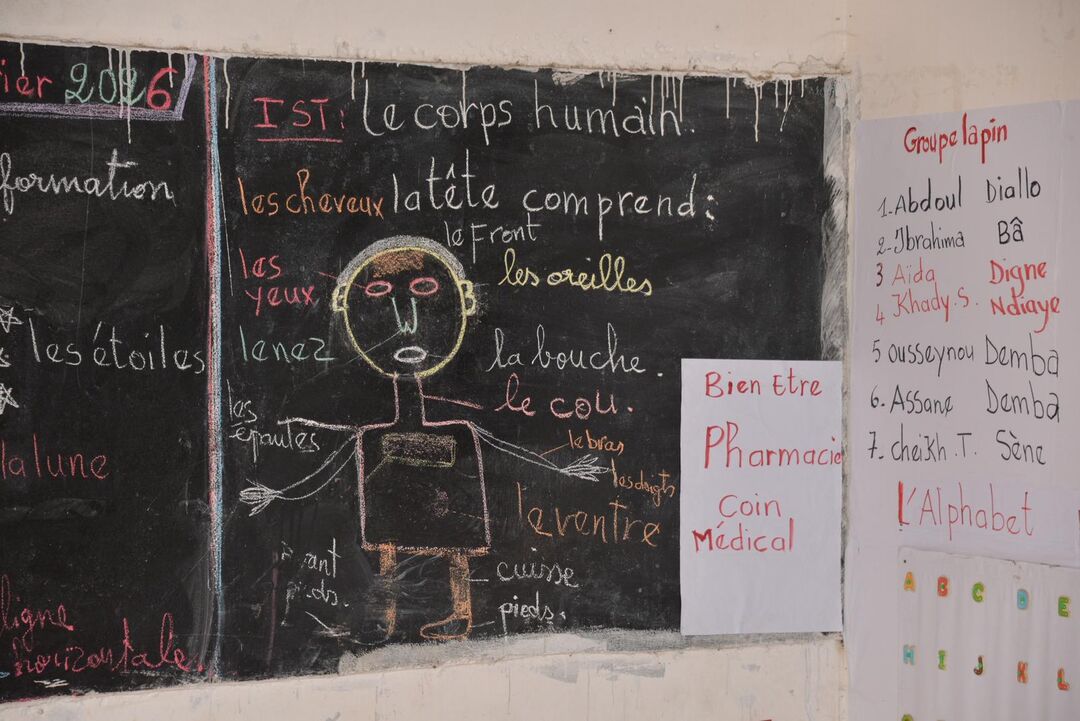 rier 2026
formation
les étoiles
la lune
ligne
horizontale.
IST: le corps humain.
les cheveux la tête comprend:
le Front
les
yeux
les oreilles
le nez
la bouche.
le cou.
les
épautes
le bras
les doigts
le ventre
cuisse
pieds.
pieds.
Bien Etre
Pharmacie
Coin
Médical
Groupe lapin
1-Abdoul Diallo
2-Ibrahima Bâ
3 Aïda Digne
4 Khady.S. Ndiaye
5 ousseynou Demba
6. Assane Demba
7. cheikh.T. Sène
L'Alphabet
A B C D E
H I J K L